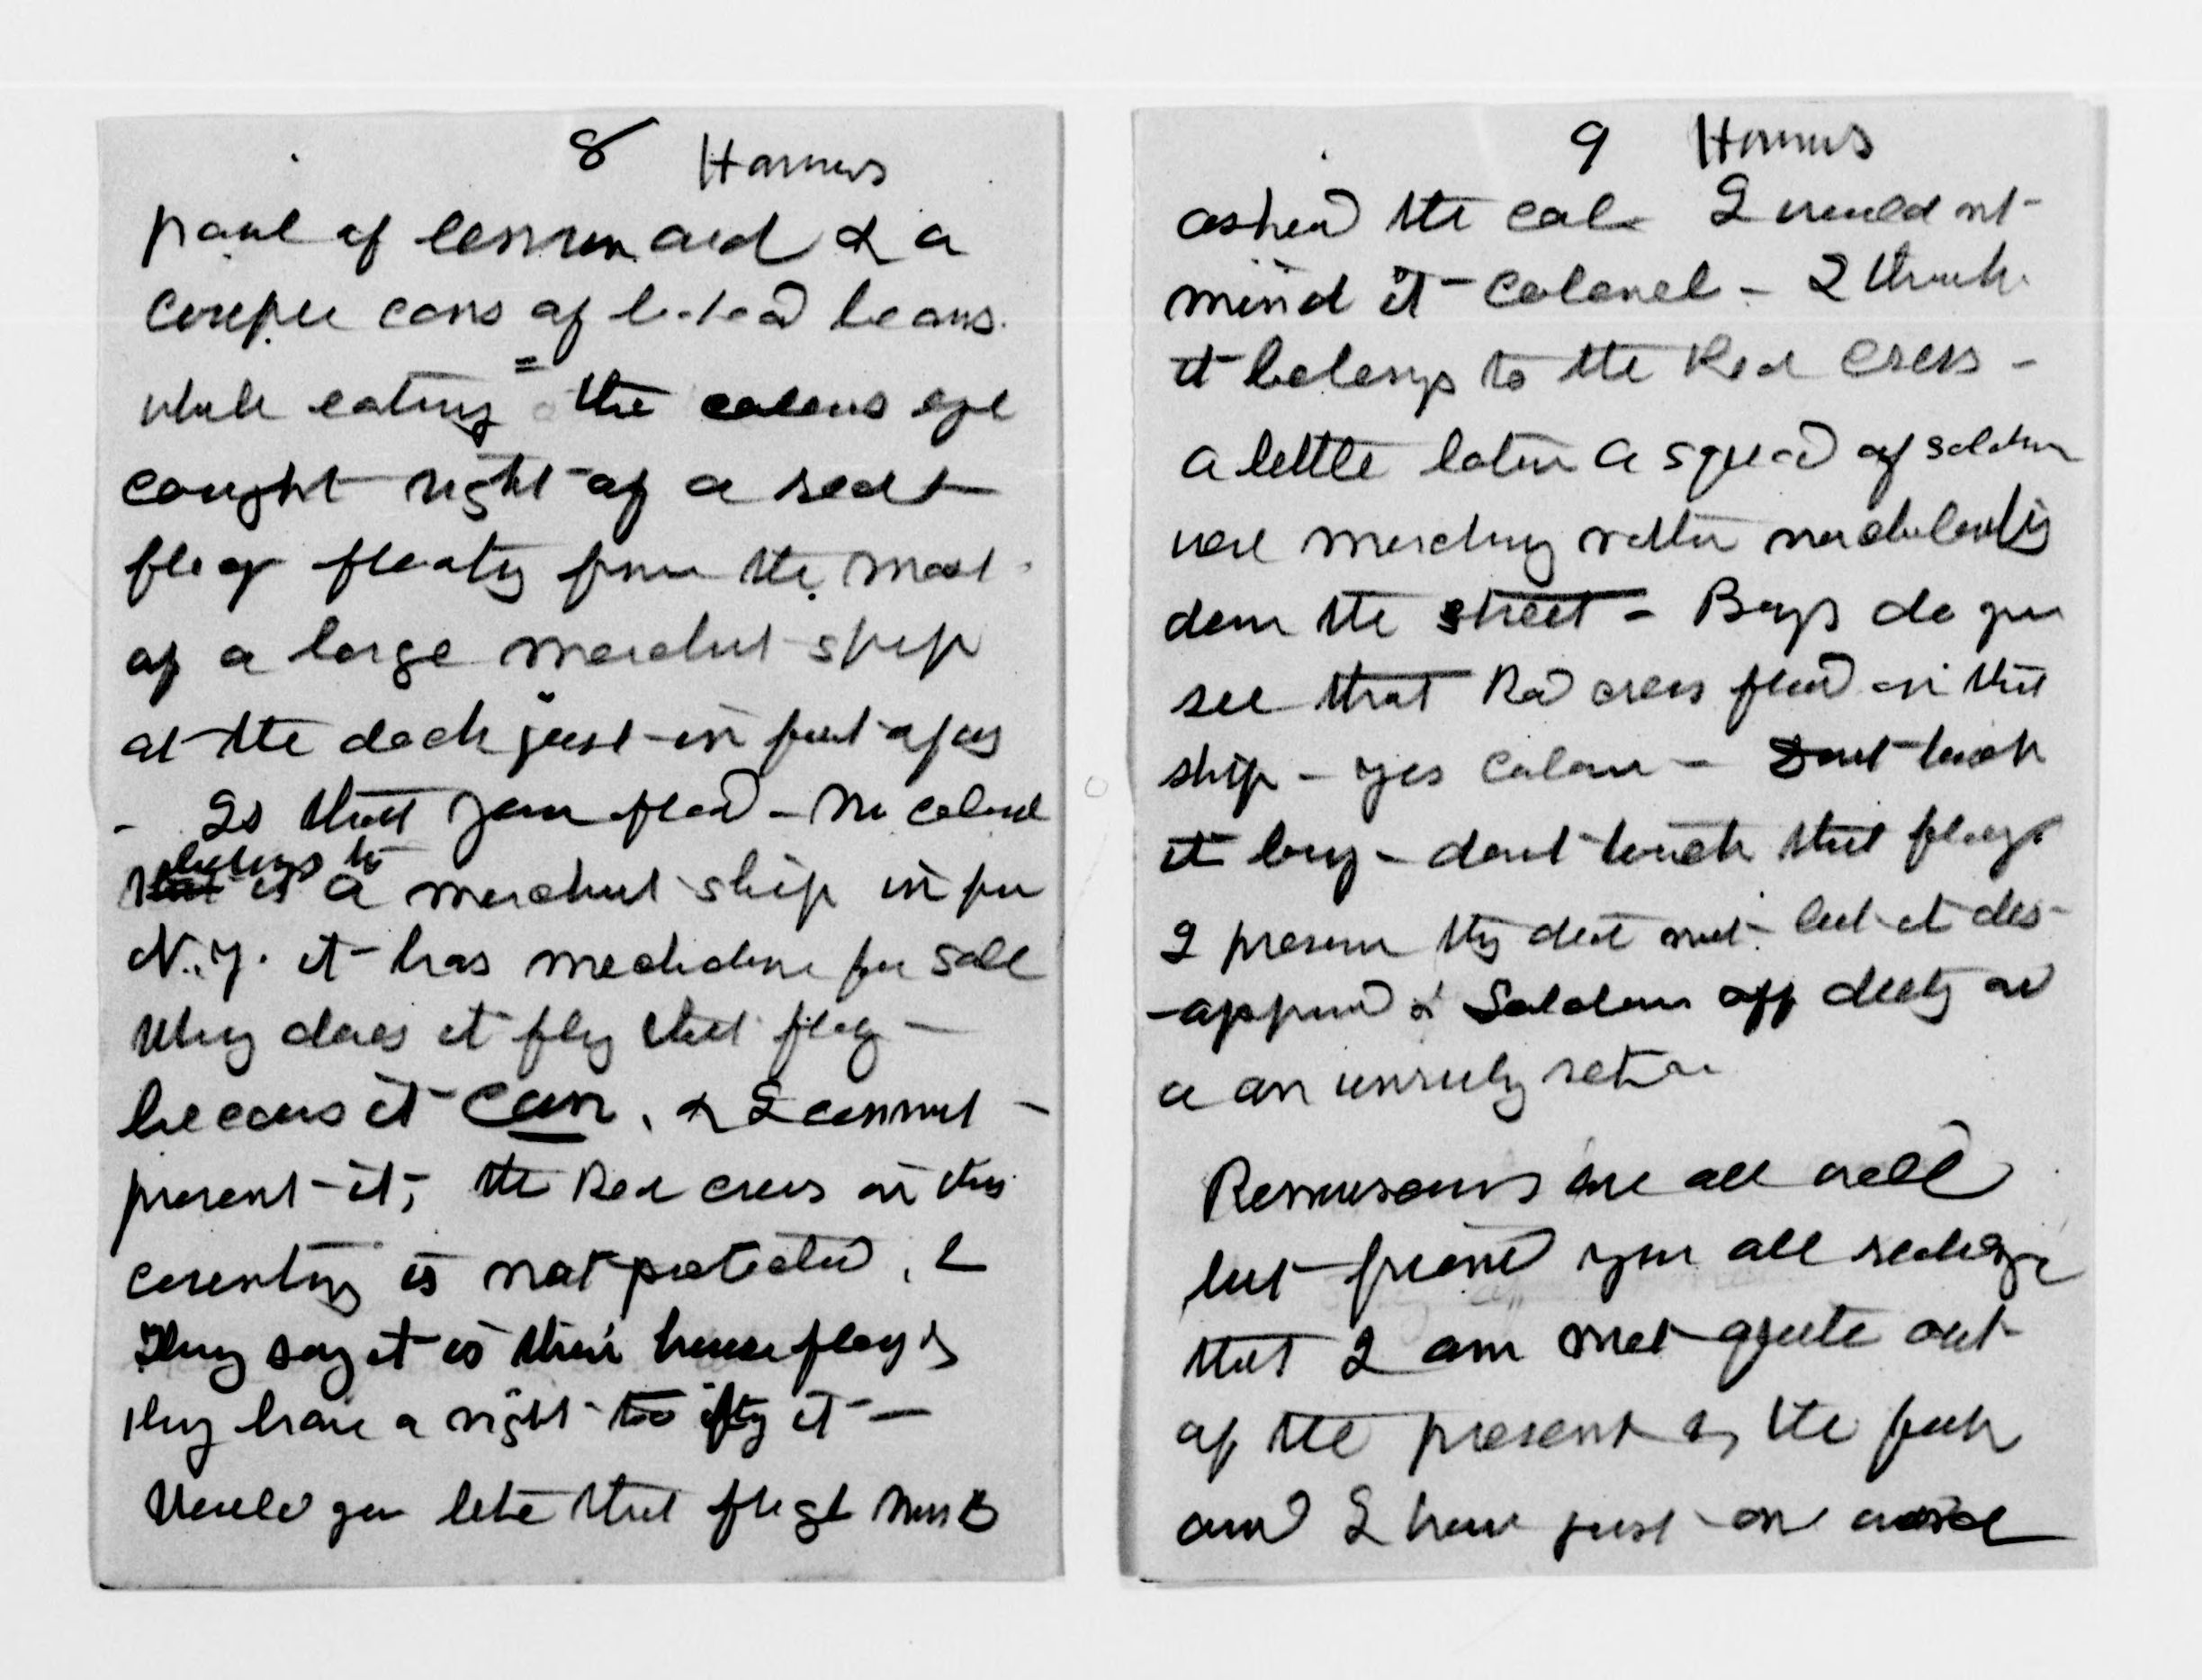 8
of lemonaid & a
cans of baked beans.
while eating = the colonels eye
caught sight of a red +
flag floating from the mast
of a large merchant ship
at the dock just in front of us
- Is that your flag - No colonel
belongs to
is a merchant ship in from
N.Y. it has medicine for sale
Why does it fly that flag -
because it can, & I cannot -
prevent it, the Red cross in this
country is not protected, &
They say it is their house flag &
they have a right to fly it -
Would you like that flag Miss B
9
asked the col I would not
mind it - Colonel - I think
it belongs to the Red Cross -
a little later a squad of soldiers
were marching rather
down the street - Boys do you
see that Red cross flag on that
ship - yes Colonel - Dont touch
it boys - dont touch that flag.
I presume they did not but it dis-
-appeared & Soldiers off duty are
a an unruly set
are all well
but friend you all realize
that I am not quite out
of the present by the
and I have just one word